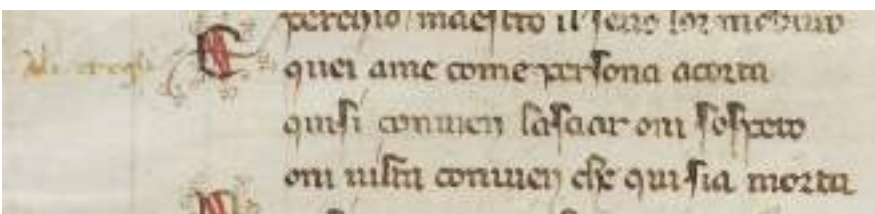 perchio maestro il senso lor meduro
E quei ame come persona acorta
quisi conuien lasciar oni sospeto
oni uilta conuien che qui sia morta